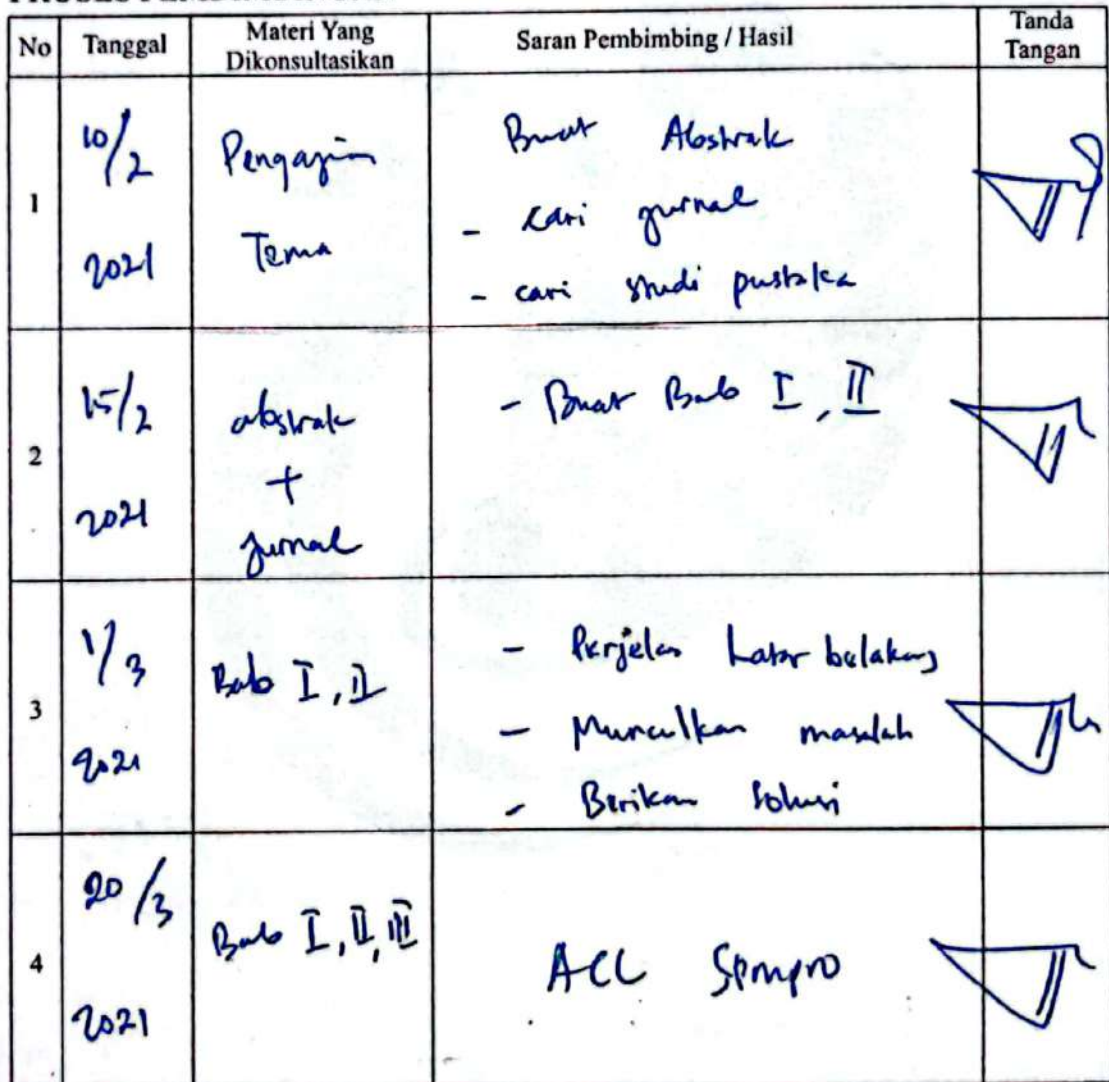 No Tanggal Materi Yang Dikonsultasikan Saran Pembimbing / Hasil Tanda Tangan
1
10/2
2021
Pengajuan
Tema
Buat Abstrak
- cari jurnal
- cari studi pustaka
2
15/2
2021
abstrak
+
jurnal
- Buat Bab I, II
3
1/3
2021
Bab I, II
- Perjelas Latar belakang
- Munculkan masalah
- Berikan Solusi
4
20/3
2021
Bab I, II, III
ACC Sempro